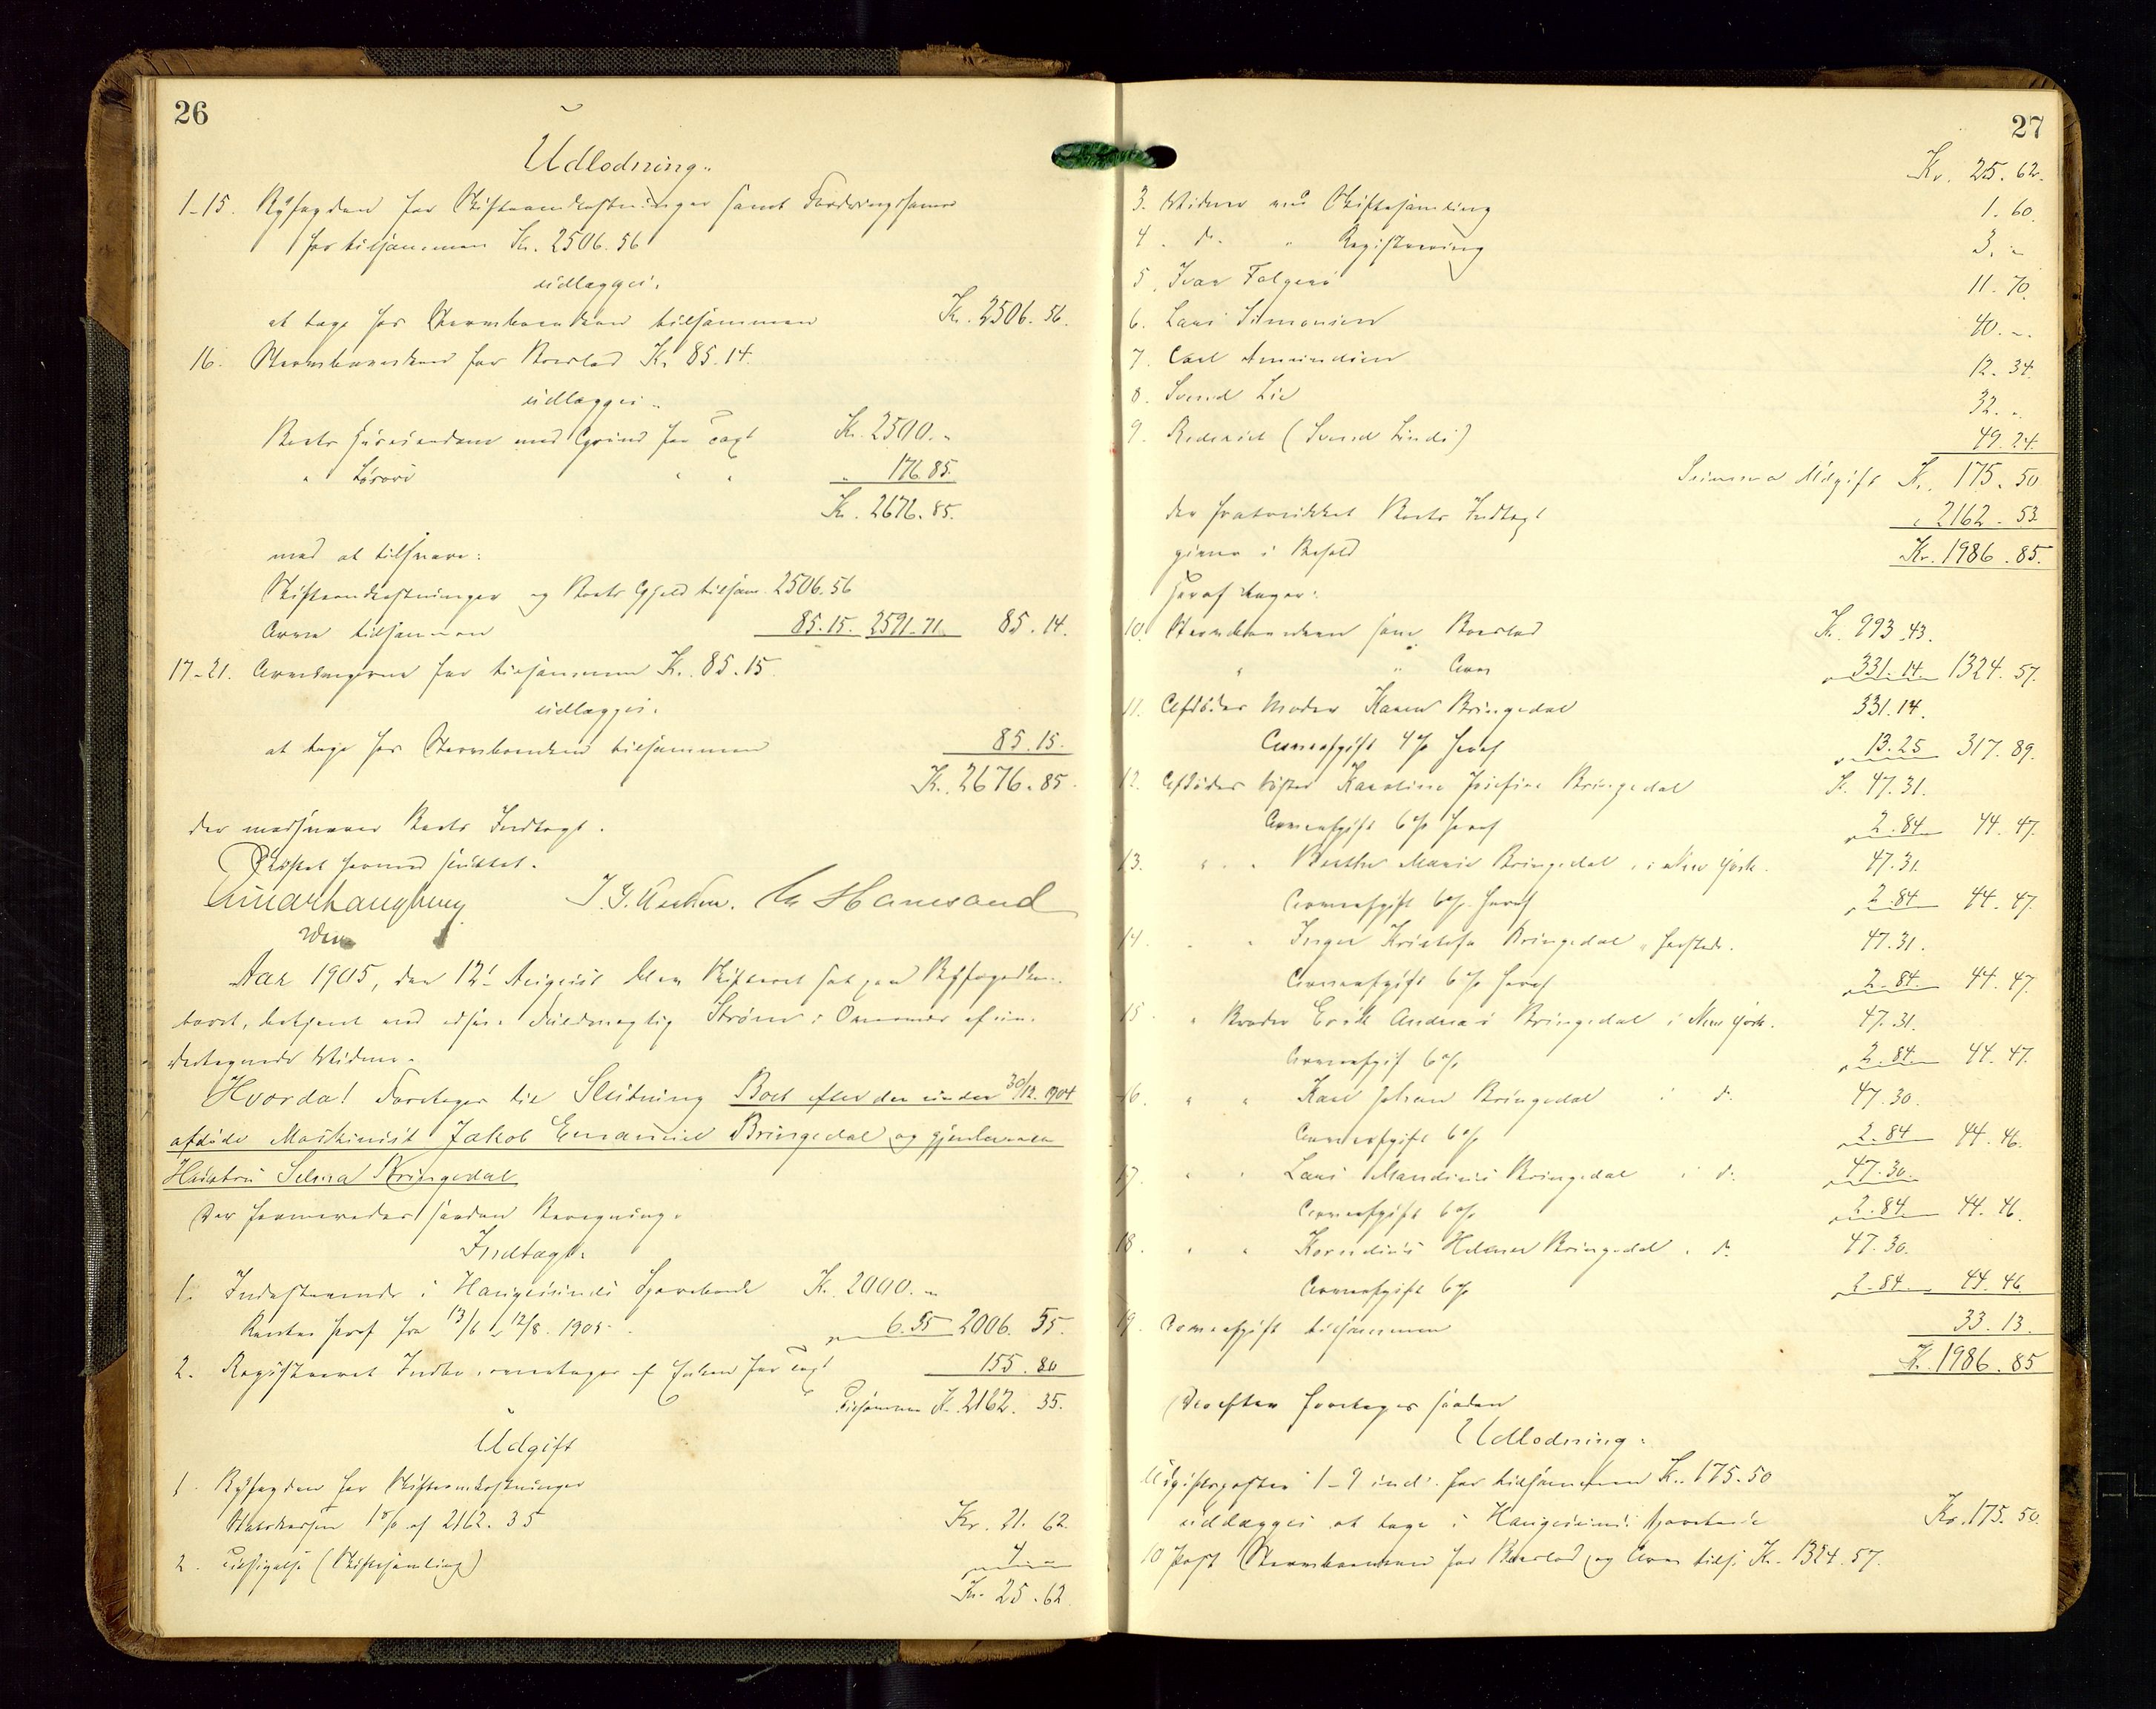 26
Udlodning.
1-15. Byfogden for Skifteomkostninger samt Fordringshaverne
for tilsammen Kr. 2506.56
udlægges:
at tage hos Stervboenken tilsammen Kr. 2506.56.
16. Stervboenken for Boeslod Kr. 85.14.
udlægges..
Boets Huseiendom med Grund for Taxt Kr. 2500.-
" Løsøre " " " 176.85.
Kr. 2676.85.
mod at tilsvare:
Skifteomkostninger og Boets Gjæld tilsam. 2506.56
Arven tilsammen 85.15. 2591.71. 85.14.
17-21. Arvingerne for tilsammen Kr. 85.15
udlægges:
at tage hos Stervboenken tilsammen 85.15.
Kr. 2676.85.
der modsvarer Boets Indtægt.
Skiftet hermed sluttet.
J. G. Hansand
Aar 1905, den 12te August blev Skifteret sat paa Byfogedkon-
toret, betjent ved edsv. Fuldmægtig Strøm i Overvær af un-
dertegnede Vidner.
Hvorda! Foretages til Slutning Boet efter den under 30/12. 1904
afdøde Maskinist Jakob Emanuel Bringedal og gjenlevende
Hustru Selma Bringedal
Der fremlægges saadan Beregning.
Indtægt.
1. Indestaaende i Haugesunds Sparebank Kr. 2000.-
Renter heraf fra 13/6 - 12/8. 1905. " 6.55 2006.55.
2. Registreret Indbo, overtages af Enken for Taxt 155.80
Tilsammen Kr. 2162.35.
Udgift
1. Byfogden for Skifteomkostninger
Statskassen 1 % af 2162.35 Kr. 21.62.
2. Tilsigelse (Skiftesamling) " 4.-
Kr. 25.62.
27
Kr. 25.62.
3. Vidner ved Skiftesamling 1.60.
4. do. " Registrering 3.-
5. Ivar Falgerø 11.70.
6. Lars Simonsen 40.-
7. Carl Amundsen 12.34.
8. Svend Lie 32.-
9. Rederiet (Svend Linds) 49.24.
Summa Udgift Kr. 175.50
der fratrukket Boets Indtægt " 2162.53
giver i Behold Kr. 1986.85.
Heraf tager:
10. Stervboenken som Boeslod Kr. 993.43.
" " Arv " 331.14. 1324.57.
11. Afdødes Moder Karen Bringedal 331.14.
Arveafgift 4% heraf " 13.25 317.89.
12. Afdødes Søster Karoline Josefine Bringedal Kr. 47.31.
Arveafgift 6% heraf " 2.84 44.47.
13. " " Berthe Marie Bringedal, i New York. 47.31.
Arveafgift 6% heraf " 2.84 44.47.
14. " " Inger Kristofa Bringedal, herstede. 47.31.
Arveafgift 6% heraf " 2.84. 44.47.
15. " Broder Erik Andreas Bringedal i New York. 47.31.
Arveafgift 6% " 2.84. 44.47.
16. " " Karl Johan Bringedal i do. 47.30.
Arveafgift 6% " 2.84 44.46.
17. " " Lars Mandius Bringedal i do. 47.30.
Arveafgift 6% " 2.84 44.46.
18. " " Kornelius Helmer Bringedal i do. 47.30.
Arveafgift 6% " 2.84 44.46.
19. Arveafgift tilsammen 33.13.
Kr. 1986.85
Derefter foretages saadan
Udlodning:
Udgiftsposter 1-9 incl. for tilsammen Kr. 175.50
udlægges at tage i Haugesunds Sparebank Kr. 175.50.
10 Post Stervboenken for Boeslod og Arv tils. Kr. 1324.57.